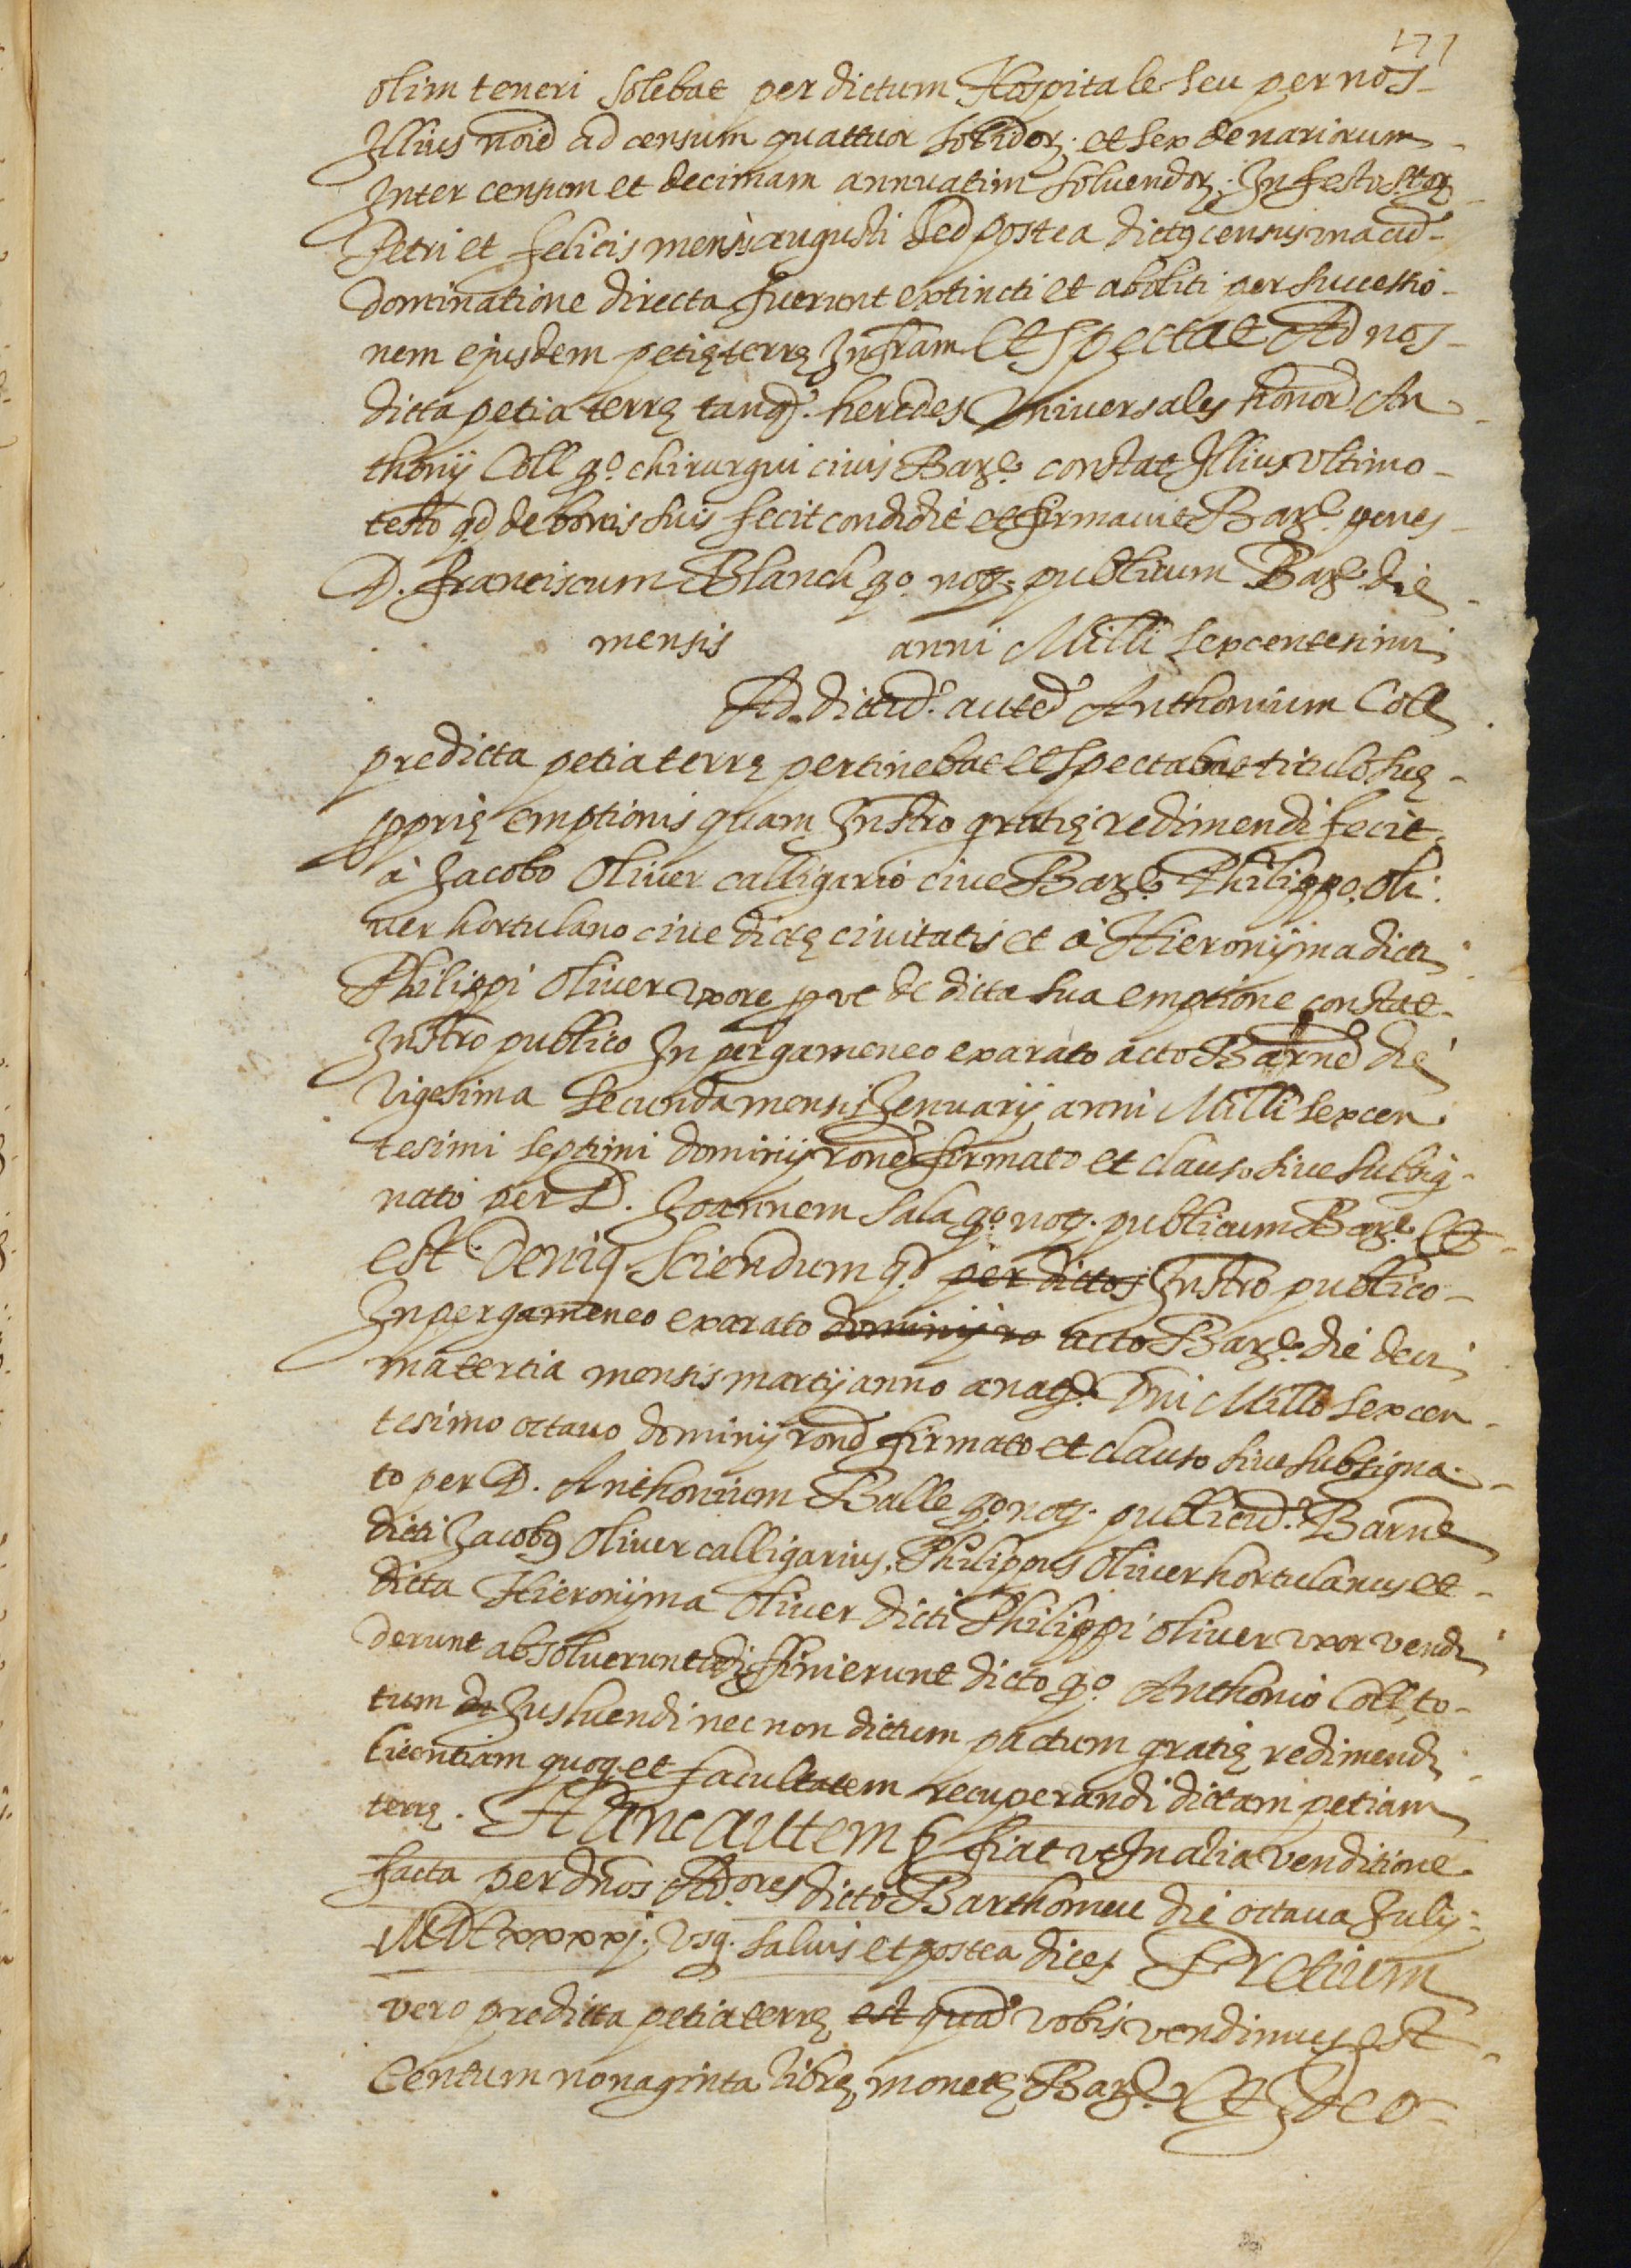 171
olim teneri solebat per dictum Hospitale seu per nos
Illius noĩe ad censum quattuor solidoꝝ et sex denariorum
Inter censum et decimam annuatim soluendoꝝ In festo stoꝝ
Petri et felicis mensis augusti Sed postea dictꝯ census una cũ
dominatione directa fuerunt extincti et aboliti per successio
nem ejusdem petię terrę Infram Et Spectat Ad nos
dicta petia terrę tanqꝫ heredes Vniversales honor. An
thonij Coll qº. chirurgui ciuis Barꝫe. constat Illius vltimo
testo qd de bonis suis fecit condidit et firmauit Barꝫe. penes
D. franciscum Blanch qº. noꝝ. publicum Barꝫe. die
mensis anni Milli sexcentesimi
Ad dictũ. autẽ Anthonium Coll
predicta petia terrę pertinebat et spectabat titulo suę
ꝓprię emptionis quam Instro gratię redimendi fecit
à Jacobo Oliuer calligario ciue Barꝫe. Philippo Oli
uer hortulano ciue dictę ciuitatis et à Hieronyma dicti
Philippi Oliuer vxore ꝓut de dicta sua emptione constat
Instro publico In pergameneo exarato acto Barnẽ die
Vigesima secunda mensis Jenuarij anni Milli sexcen
tesimi septimi dominij rone firmato et clauso siue subsig
nato per D. Joannem Sala qº. noꝝ. publicum Barꝫe. Et
est Deniqꝫ Sciendum qd per dictos Instro publico
In pergameneo exarato dominij ro acto Barꝫe. die deci
ma tertia mensis martij anno a natꝫ. Dni Millo sexcen
tesimo octauo dominij rone firmato et clauso siue subsigna
to per D. Anthonium Batlle qº. noꝝ. publicũ. Barnẽ
dicti Jacobꝯ Oliuer calligarius, Philippus Oliuer hortulanus et
dicta Hieronyma Oliuer dicti Philippi Oliuer vxor vendi
derunt absoluerunt et diffinierunt dicto qº. Anthonio Coll, to
tum de Jus luendi nec non dictum pactum gratię redimendi
licentiam quoqꝫ et facultatem recuperandi dictam petiam
terrę. Hanc autem &ccedil; fiat vt In alia venditione
facta per dños Adores dicto Barthomeu die octaua Julij
MDCxxxxj. vsqꝫ. saluis et postea dices Pretium
vero predicta petia terrę est quã vobis vendimus est
Centum nonaginta librę, monetę Barꝫe. Et Ideo